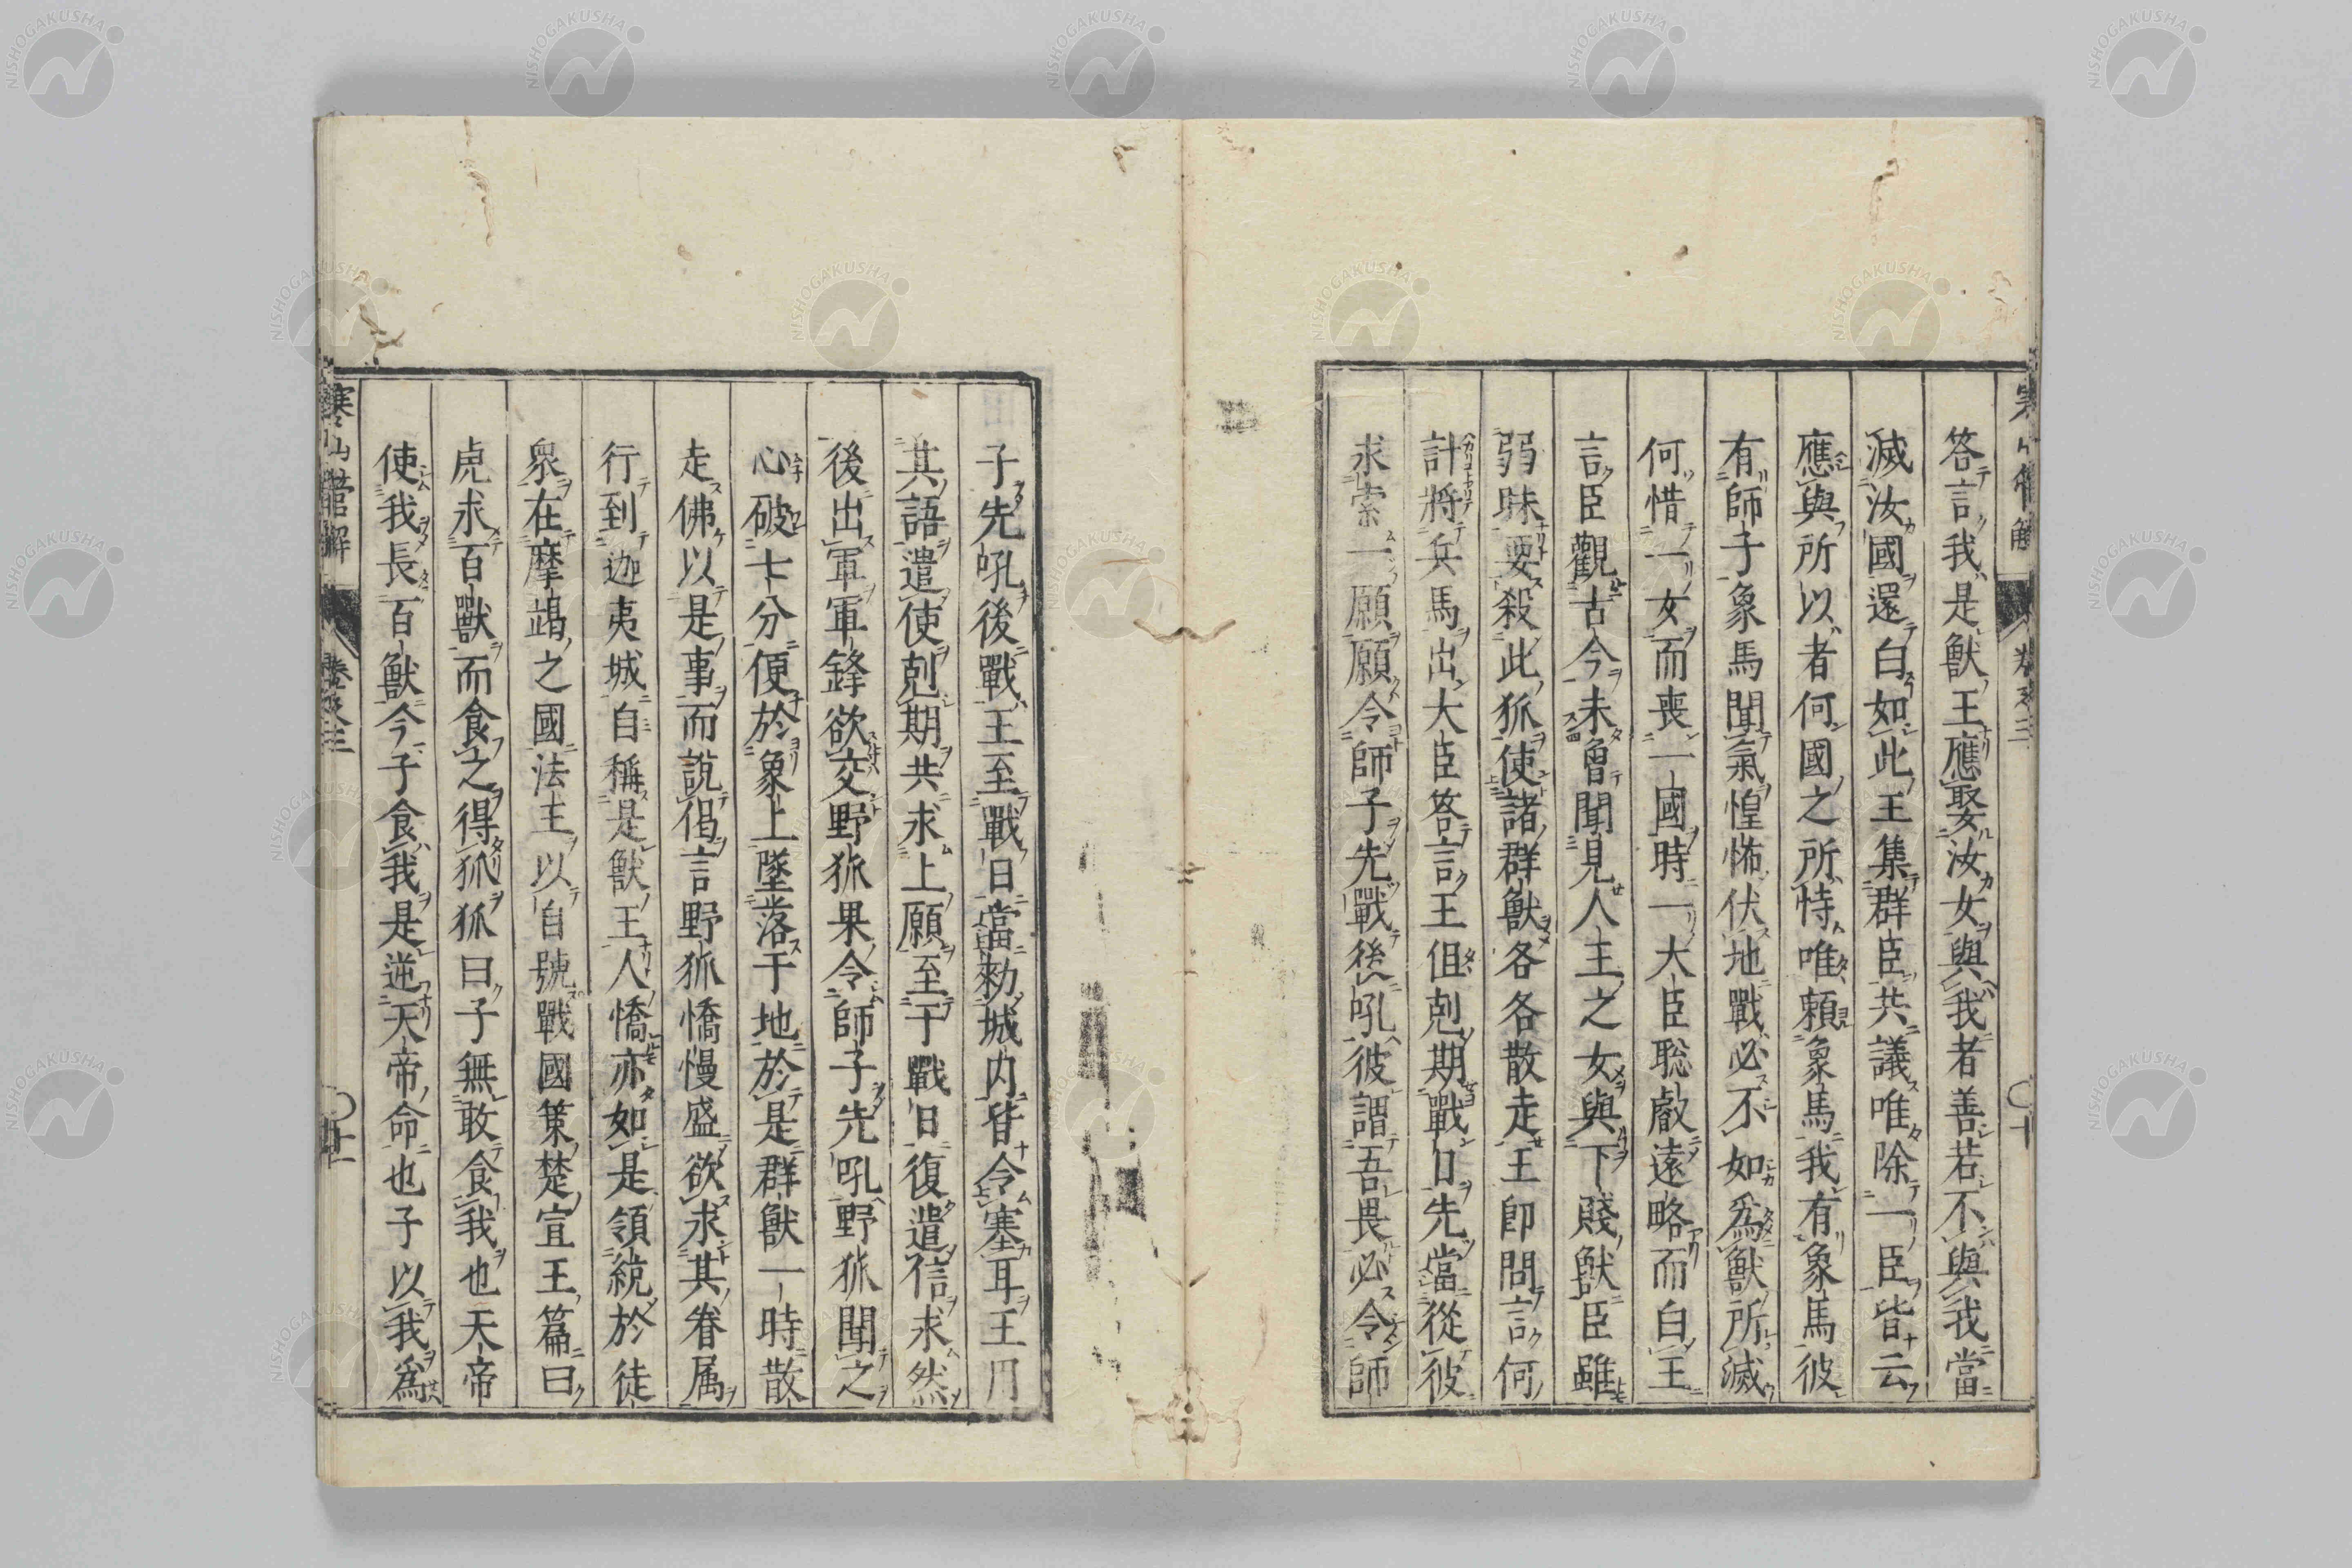 答言我是獸王應娶汝女與我者善若不與我當
滅汝國還白如此王集群臣共議唯除一臣皆云
應與所以者何國之所恃唯賴象馬我有象馬彼
有師子象馬聞氣惶怖伏地戰必不如爲獸所滅
何惜一女而喪一國時一大臣聡叡遠略而白王
言臣觀古今未曾聞見人主之女與下賤獸臣雖
弱昧要殺此狐使諸群獸各各散走王即問言何
計將兵馬出大臣答言王但剋期戰日先當從彼
求索一願願令師子先戰後吼彼謂吾畏必令師
子先吼後戰王至戰日當勅城内皆令塞耳王用
其語遣使剋期共求上願至于戰日復遣信求然
後出軍軍鋒欲交野狐果令師子先吼野狐聞之
心破七分便於象上墜落于地於是群獸一時散
走佛以是事而説偈言野狐憍慢盛欲求其眷属
行到迦夷城自稱是獸王人憍亦如是領統於徒
衆在摩竭之國法主以自號戰國策楚宣王篇曰
虎求百獸而食之得狐狐曰子無敢食我也天帝
使我長百獸今子食我是逆天帝命也子以我爲
寒山管解 卷之三 十一